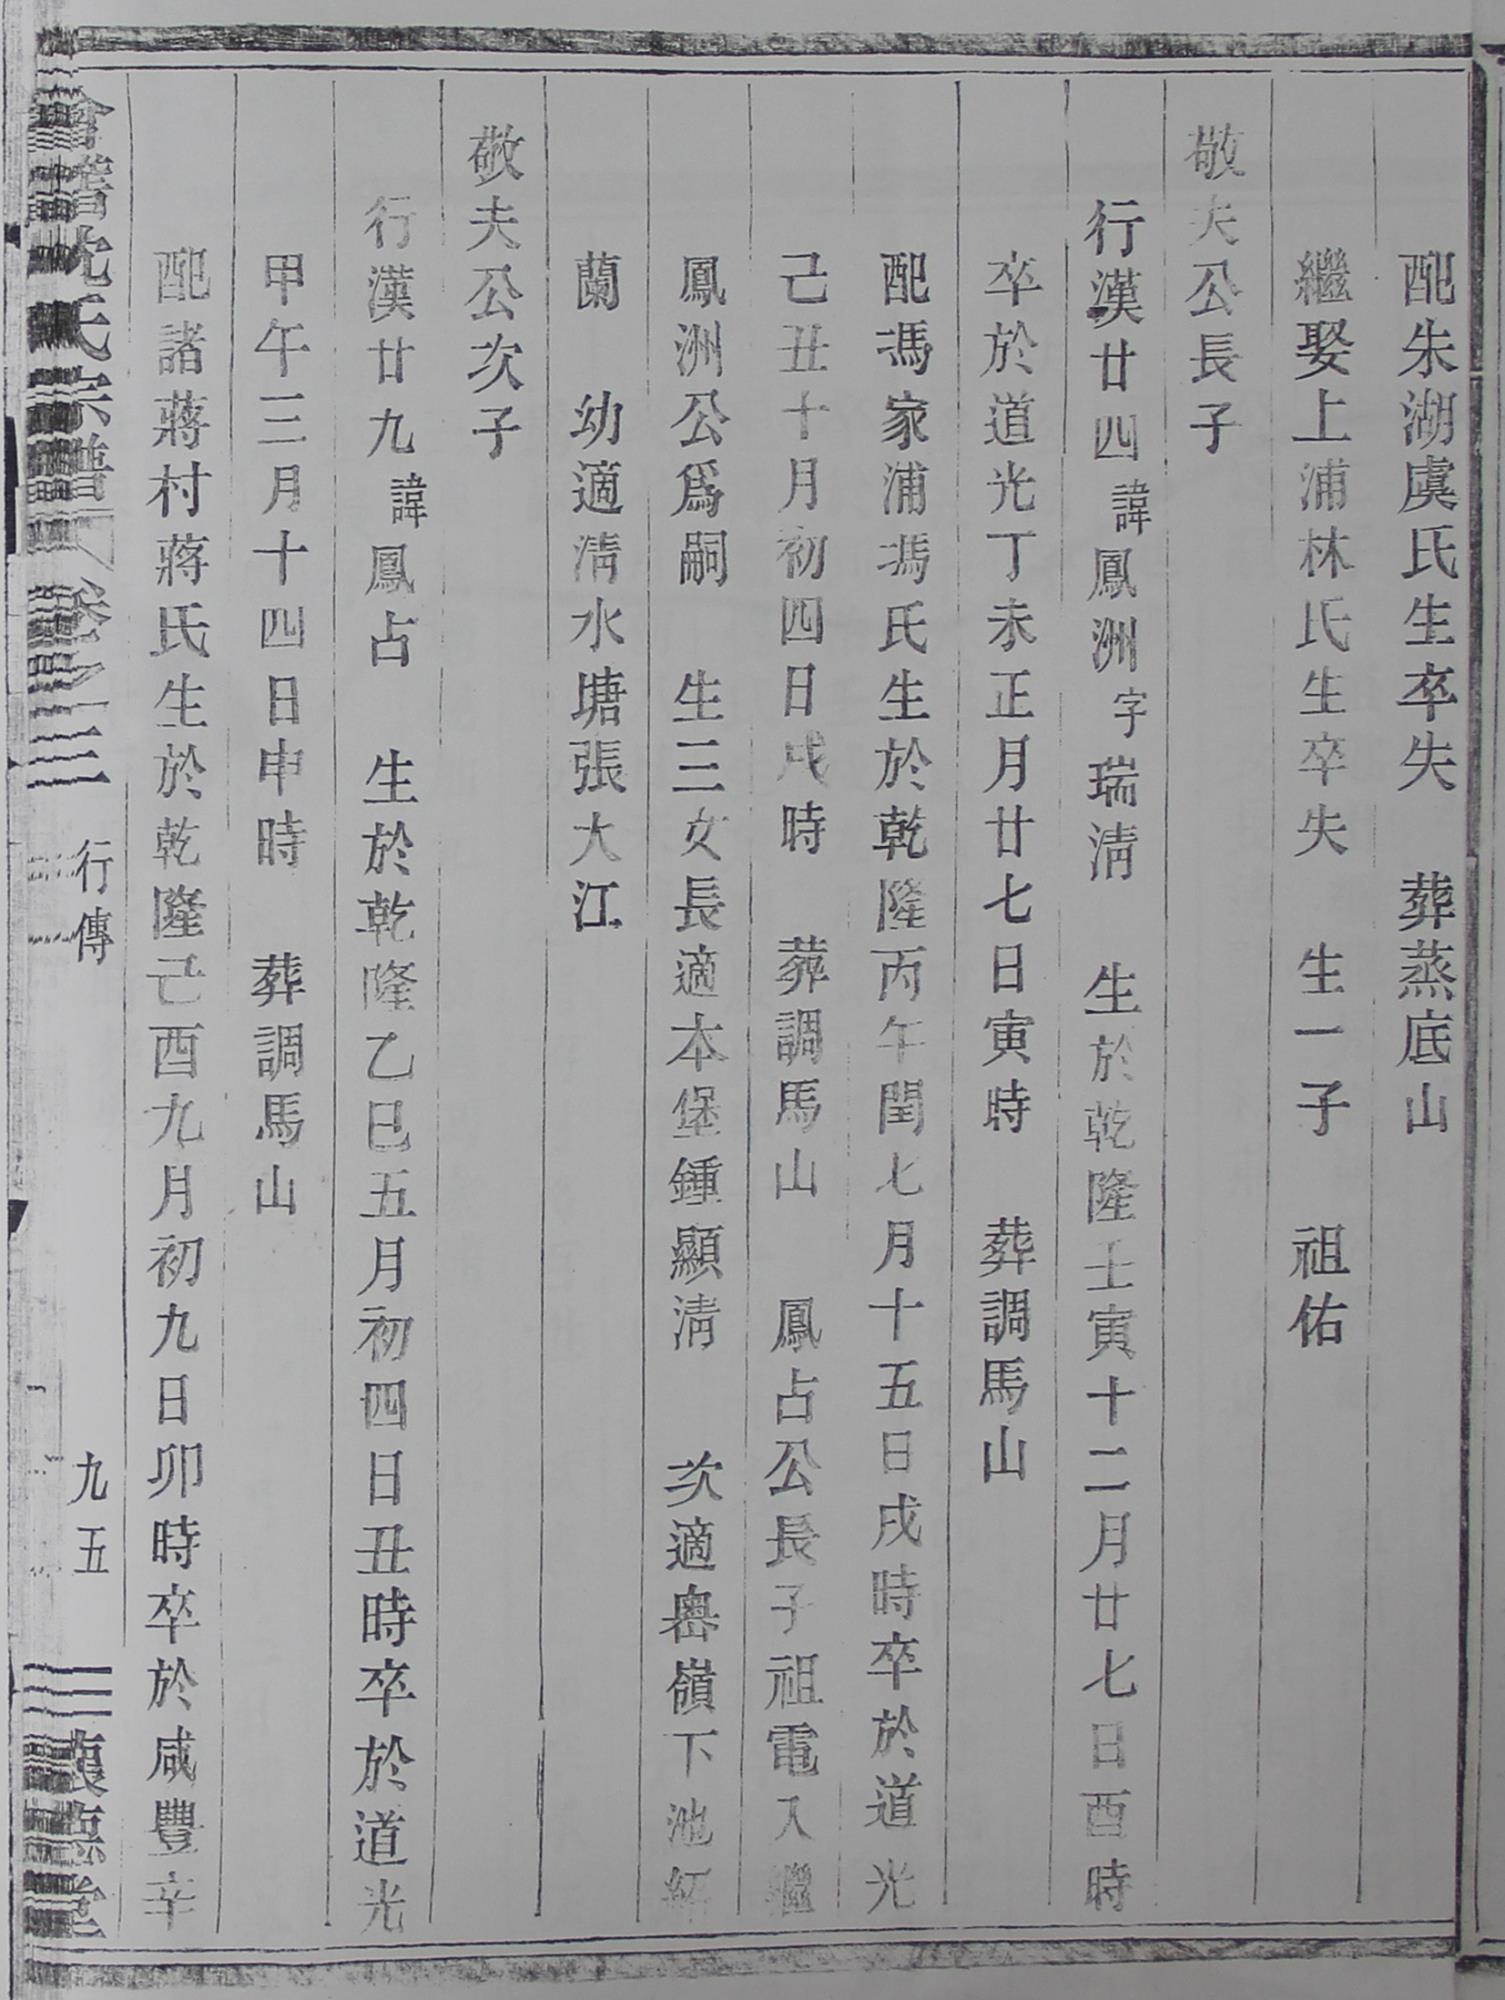 配朱湖虞氏生卒失　葬蒸底山
繼娶上浦林氏生卒失　生一子　祖佑
敬夫公長子
行漢廿四諱鳳洲字瑞淸　生於乾隆壬寅十二月廿七日酉時
卒於道光丁未正月廿七日寅時　葬調馬山
配馮家浦馮氏生於乾隆丙午閏七月十五日戌時卒於道光
己丑十月初四日戌時　葬調馬山　鳳占公長子祖電入繼
鳳洲公爲嗣　生三女長適本堡鍾顯淸　次適嶴嶺下池紹
蘭　幼適淸水塘張大江
敬夫公次子
行漢廿九諱鳳占　生於乾隆乙巳五月初四日丑時卒於道光
甲午三月十四日申時　葬調馬山
配諸蔣村蔣氏生於乾隆己酉九月初九日卯時卒於咸豐辛
會稽沈氏宗譜　卷三　行傳　九五